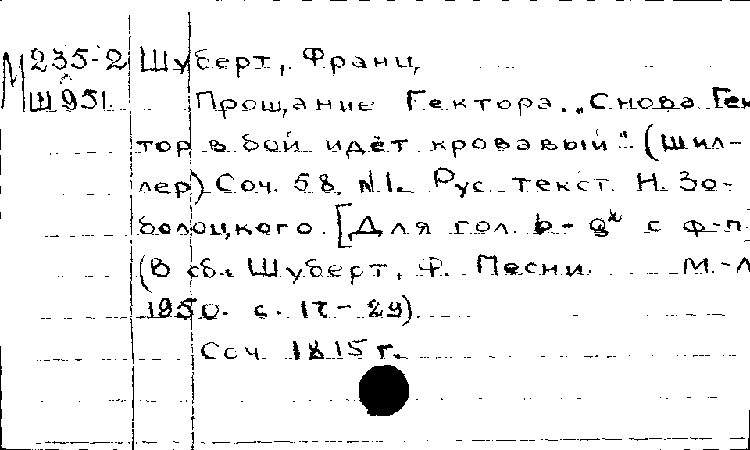 М 235-2 Шуберт, Франц
Ш 951. Прощание Гектора. „Снова Гек
тор в бой идёт кровавый". (Шил-
лер) Соч. 58, №1. Рус. текст Н. За-
болоцкого. [Для гол. b - g² с ф-п.
(В сб.: Шуберт, Ф. Песни. М.-Л
1950. с. 17-29).
Соч. 1815 г.